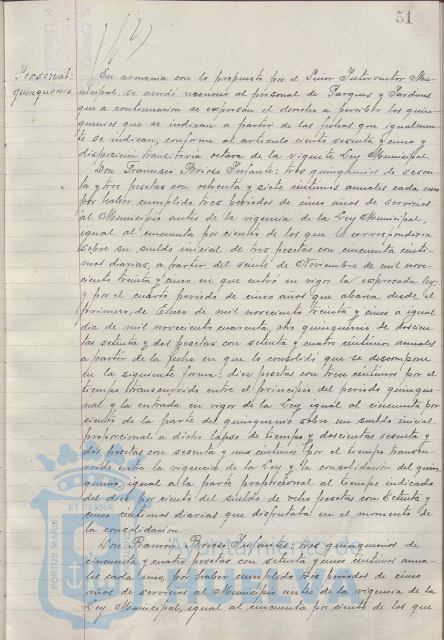 51
Personal:
quinquenios
En armonia con lo propuesto por el Señor Interventor Mu-
nicipal, se acordó reconocer al personal de Parques y Jardines
que a continuación se expresan el derecho a percibir los quin-
quenios que se indican a partir de las fechas que igualmen-
te se indican, conforme al articulo ciento sesenta y cinco y
disposición transitoria octava de la vigente Ley Municipal.
Don Francisco Brioso Infante: tres quinquenios de sesen-
ta y tres pesetas con ochenta y siete centimos anuales cada uno
por haber cumplido tres periodos de cinco años de servicios
al Municipio antes de la vigencia de la Ley Municipal,
igual al cincuenta por ciento de los que le correspondería
sobre su sueldo inicial de tres pesetas con cincuenta centi-
mos diarias, a partir del veinte de Noviembre de mil nove-
ciento treinta y cinco en que entró en vigor la expresada ley;
y por el cuarto periodo de cinco años que abarca desde el
primero de Enero de mil noveciento treinta y cinco a igual
dia de mil noveciento cuarenta, otro quinquenio de doscien-
tas setenta y dos pesetas con setenta y cuatro centimos anuales
a partir de la fecha en que lo consolidó que se descompone
en la siguiente forma: diez pesetas con trece centimos por el
tiempo transcurrido entre el principio del periodo quinque-
nal y la entrada en vigor de la Ley, igual al cincuenta por
ciento de la parte del quinquenio sobre su sueldo inicial
proporcional a dicho lapso de tiempo y doscientas sesenta y
dos pesetas con sesenta y un centimos por el tiempo transcu-
rrido entre la vigencia de la Ley y la consolidación del quin-
quenio, igual a la parte proporcional al tiempo indicado
del diez por ciento del sueldo de ocho pesetas con setenta y
cinco centimos diarias que disfrutaba en el momento de
la consolidación.
Don Ramón Brioso Infante: tres quinquenios de
cincuenta y cuatro pesetas con setenta y cinco centimos anua-
les cada uno, por haber cumplido tres periodos de cinco
años de servicios al Municipio antes de la vigencia de la
Ley Municipal, igual al cincuenta por ciento de los que
Ayuntamiento de
HUELVA
PORTUS MARIS
ET TERRAE